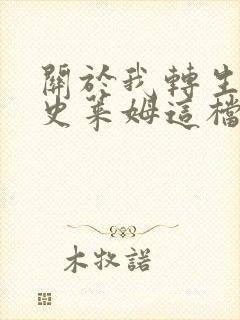 關於我轉生
史萊姆這檔
木牧諾